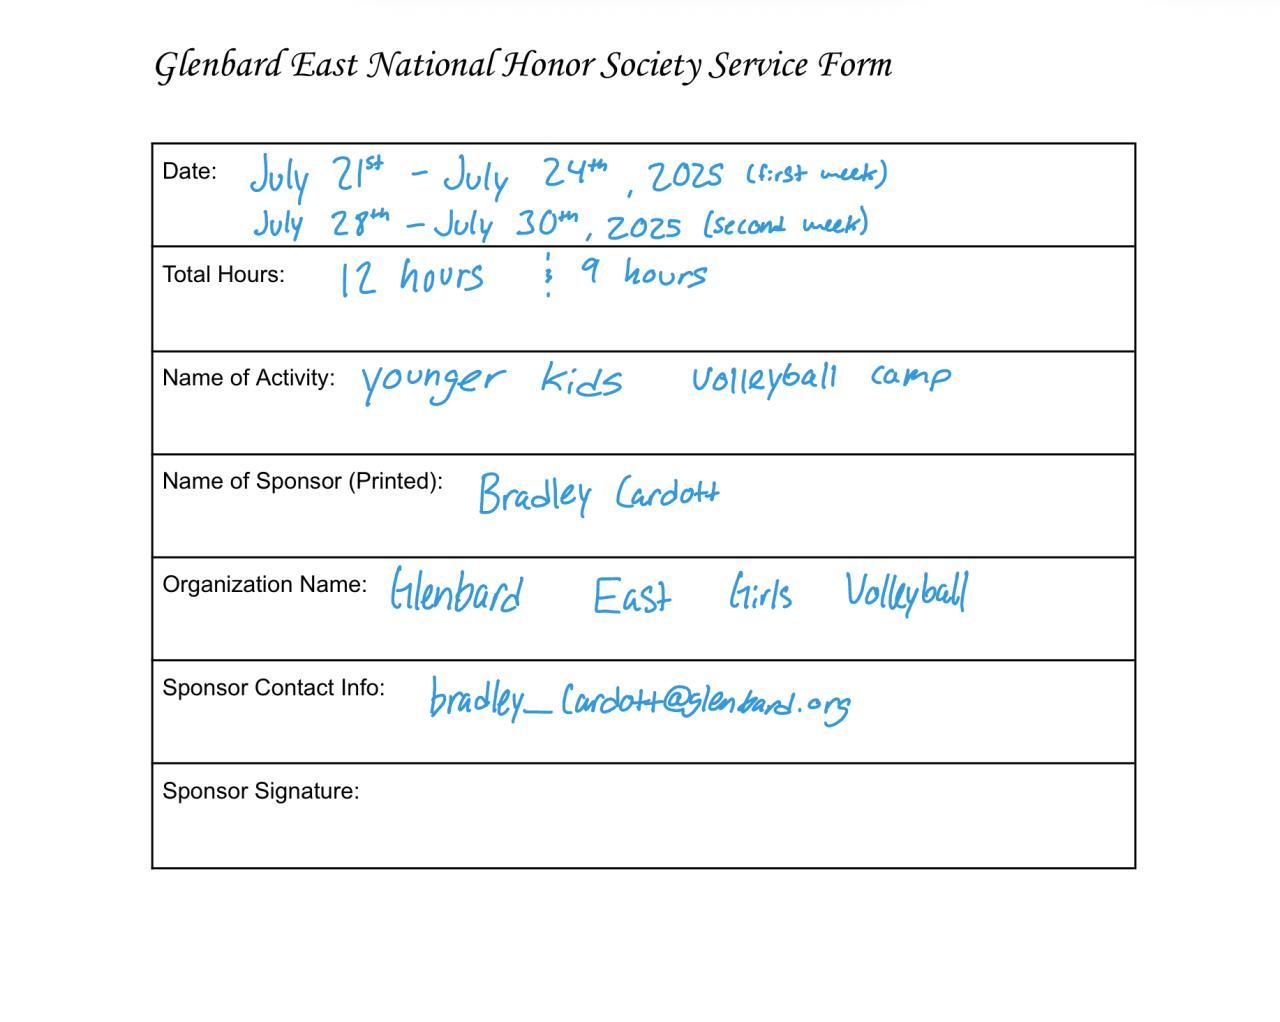 Glenbard East National Honor Society Service Form
Date: July 21st - July 24th, 2025 (first week)
July 28th - July 30th, 2025 (second week)
Total Hours: 12 hours & 9 hours
Name of Activity: younger kids volleyball camp
Name of Sponsor (Printed): Bradley Cardott
Organization Name: Glenbard East Girls Volleyball
Sponsor Contact Info: bradley_Cardott@glenbard.org
Sponsor Signature: